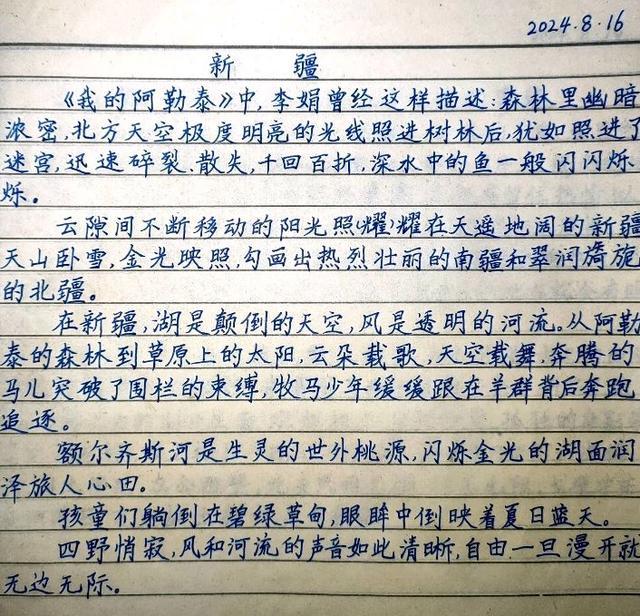 2024.8.16
新 疆
《我的阿勒泰》中,李娟曾经这样描述:森林里幽暗
浓密,北方天空极度明亮的光线照进树林后,犹如照进了
迷宫,迅速碎裂、散失,千回百折,深水中的鱼一般闪闪烁
烁。
云隙间不断移动的阳光照(耀)耀在天遥地阔的新疆
天山卧雪,金光映照,勾画出热烈壮丽的南疆和翠润旖旎
的北疆。
在新疆,湖是颠倒的天空,风是透明的河流。从阿勒
泰的森林到草原上的太阳,云朵载歌,天空载舞.奔腾的
马儿突破了围栏的束缚,牧马少年缓缓跟在羊群背后奔跑
追逐。
额尔齐斯河是生灵的世外桃源,闪烁金光的湖面润
泽旅人心田。
孩童们躺倒在碧绿草甸,眼眸中倒映着夏日蓝天。
四野悄寂,风和河流的声音如此清晰,自由一旦漫开就
无边无际。